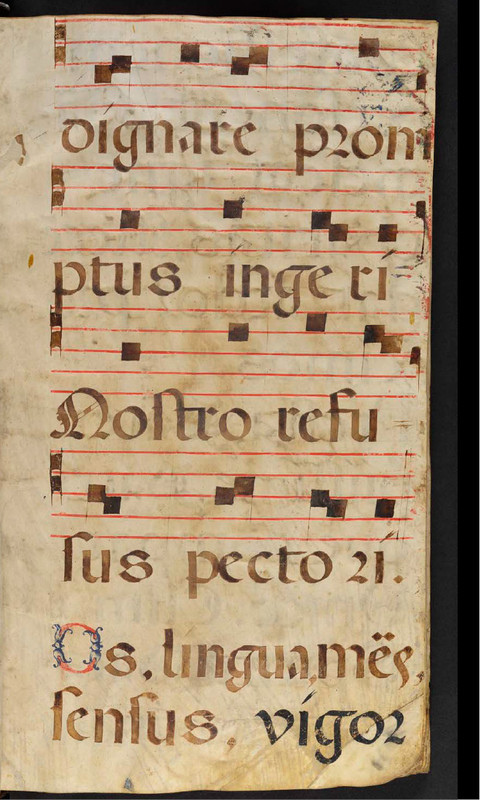 dignare prom
ptus ingeri
Noſtro refu
ſus pectori.
Os, lingua, mēs,
ſenſus, vigor